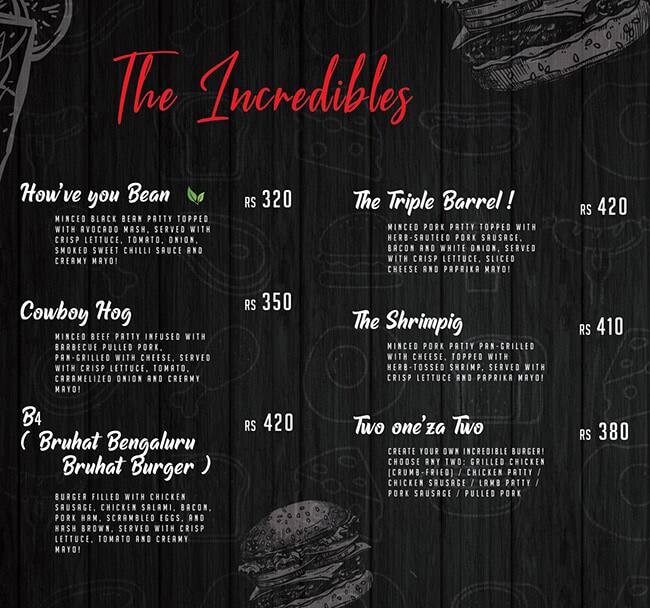 The Incredibles
How've you Bean
RS 320
MINCED BLACK BEAN PATTY TOPPED
WITH AVOCADO MASH, SERVED WITH
CRISP LETTUCE, TOMATO, ONION,
SMOKED SWEET CHILLI SAUCE AND
CREAMY MAYO!
Cowboy Hog
RS 350
MINCED BEEF PATTY INFUSED WITH
BARBECUE PULLED PORK,
PAN-GRILLED WITH CHEESE, SERVED
WITH CRISP LETTUCE, TOMATO,
CARAMELIZED ONION AND CREAMY
MAYO!
B4
( Bruhat Bengaluru
Bruhat Burger )
RS 420
BURGER FILLED WITH CHICKEN
SAUSAGE, CHICKEN SALAMI, BACON,
PORK HAM, SCRAMBLED EGGS, AND
HASH BROWN, SERVED WITH CRISP
LETTUCE, TOMATO AND CREAMY
MAYO!
The Triple Barrel !
RS 420
MINCED PORK PATTY TOPPED WITH
HERB-SAUTEED PORK SAUSAGE,
BACON AND WHITE ONION, SERVED
WITH CRISP LETTUCE, SLICED
CHEESE AND PAPRIKA MAYO!
The Shrimpig
RS 410
MINCED PORK PATTY PAN-GRILLED
WITH CHEESE, TOPPED WITH
HERB-TOSSED SHRIMP, SERVED WITH
CRISP LETTUCE AND PAPRIKA MAYO!
Two one'za Two
RS 380
CREATE YOUR OWN INCREDIBLE BURGER!
CHOOSE ANY TWO: GRILLED CHICKEN
(CRUMB-FRIED) / CHICKEN PATTY /
CHICKEN SAUSAGE / LAMB PATTY /
PORK SAUSAGE / PULLED PORK